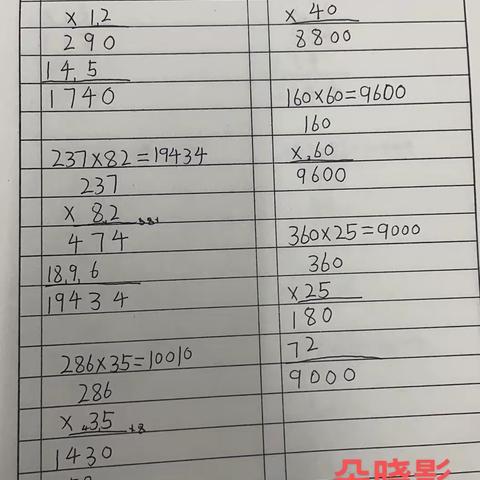 × 1,2
290
14,5
1740
237×82=19434
237
× 8,2
474
18,9,6
19434
286×35=10010
286
× 35
1430
× 40
8800
160×60=9600
160
×,60
9600
360×25=9000
360
×25
180
72
9000
朵晓影